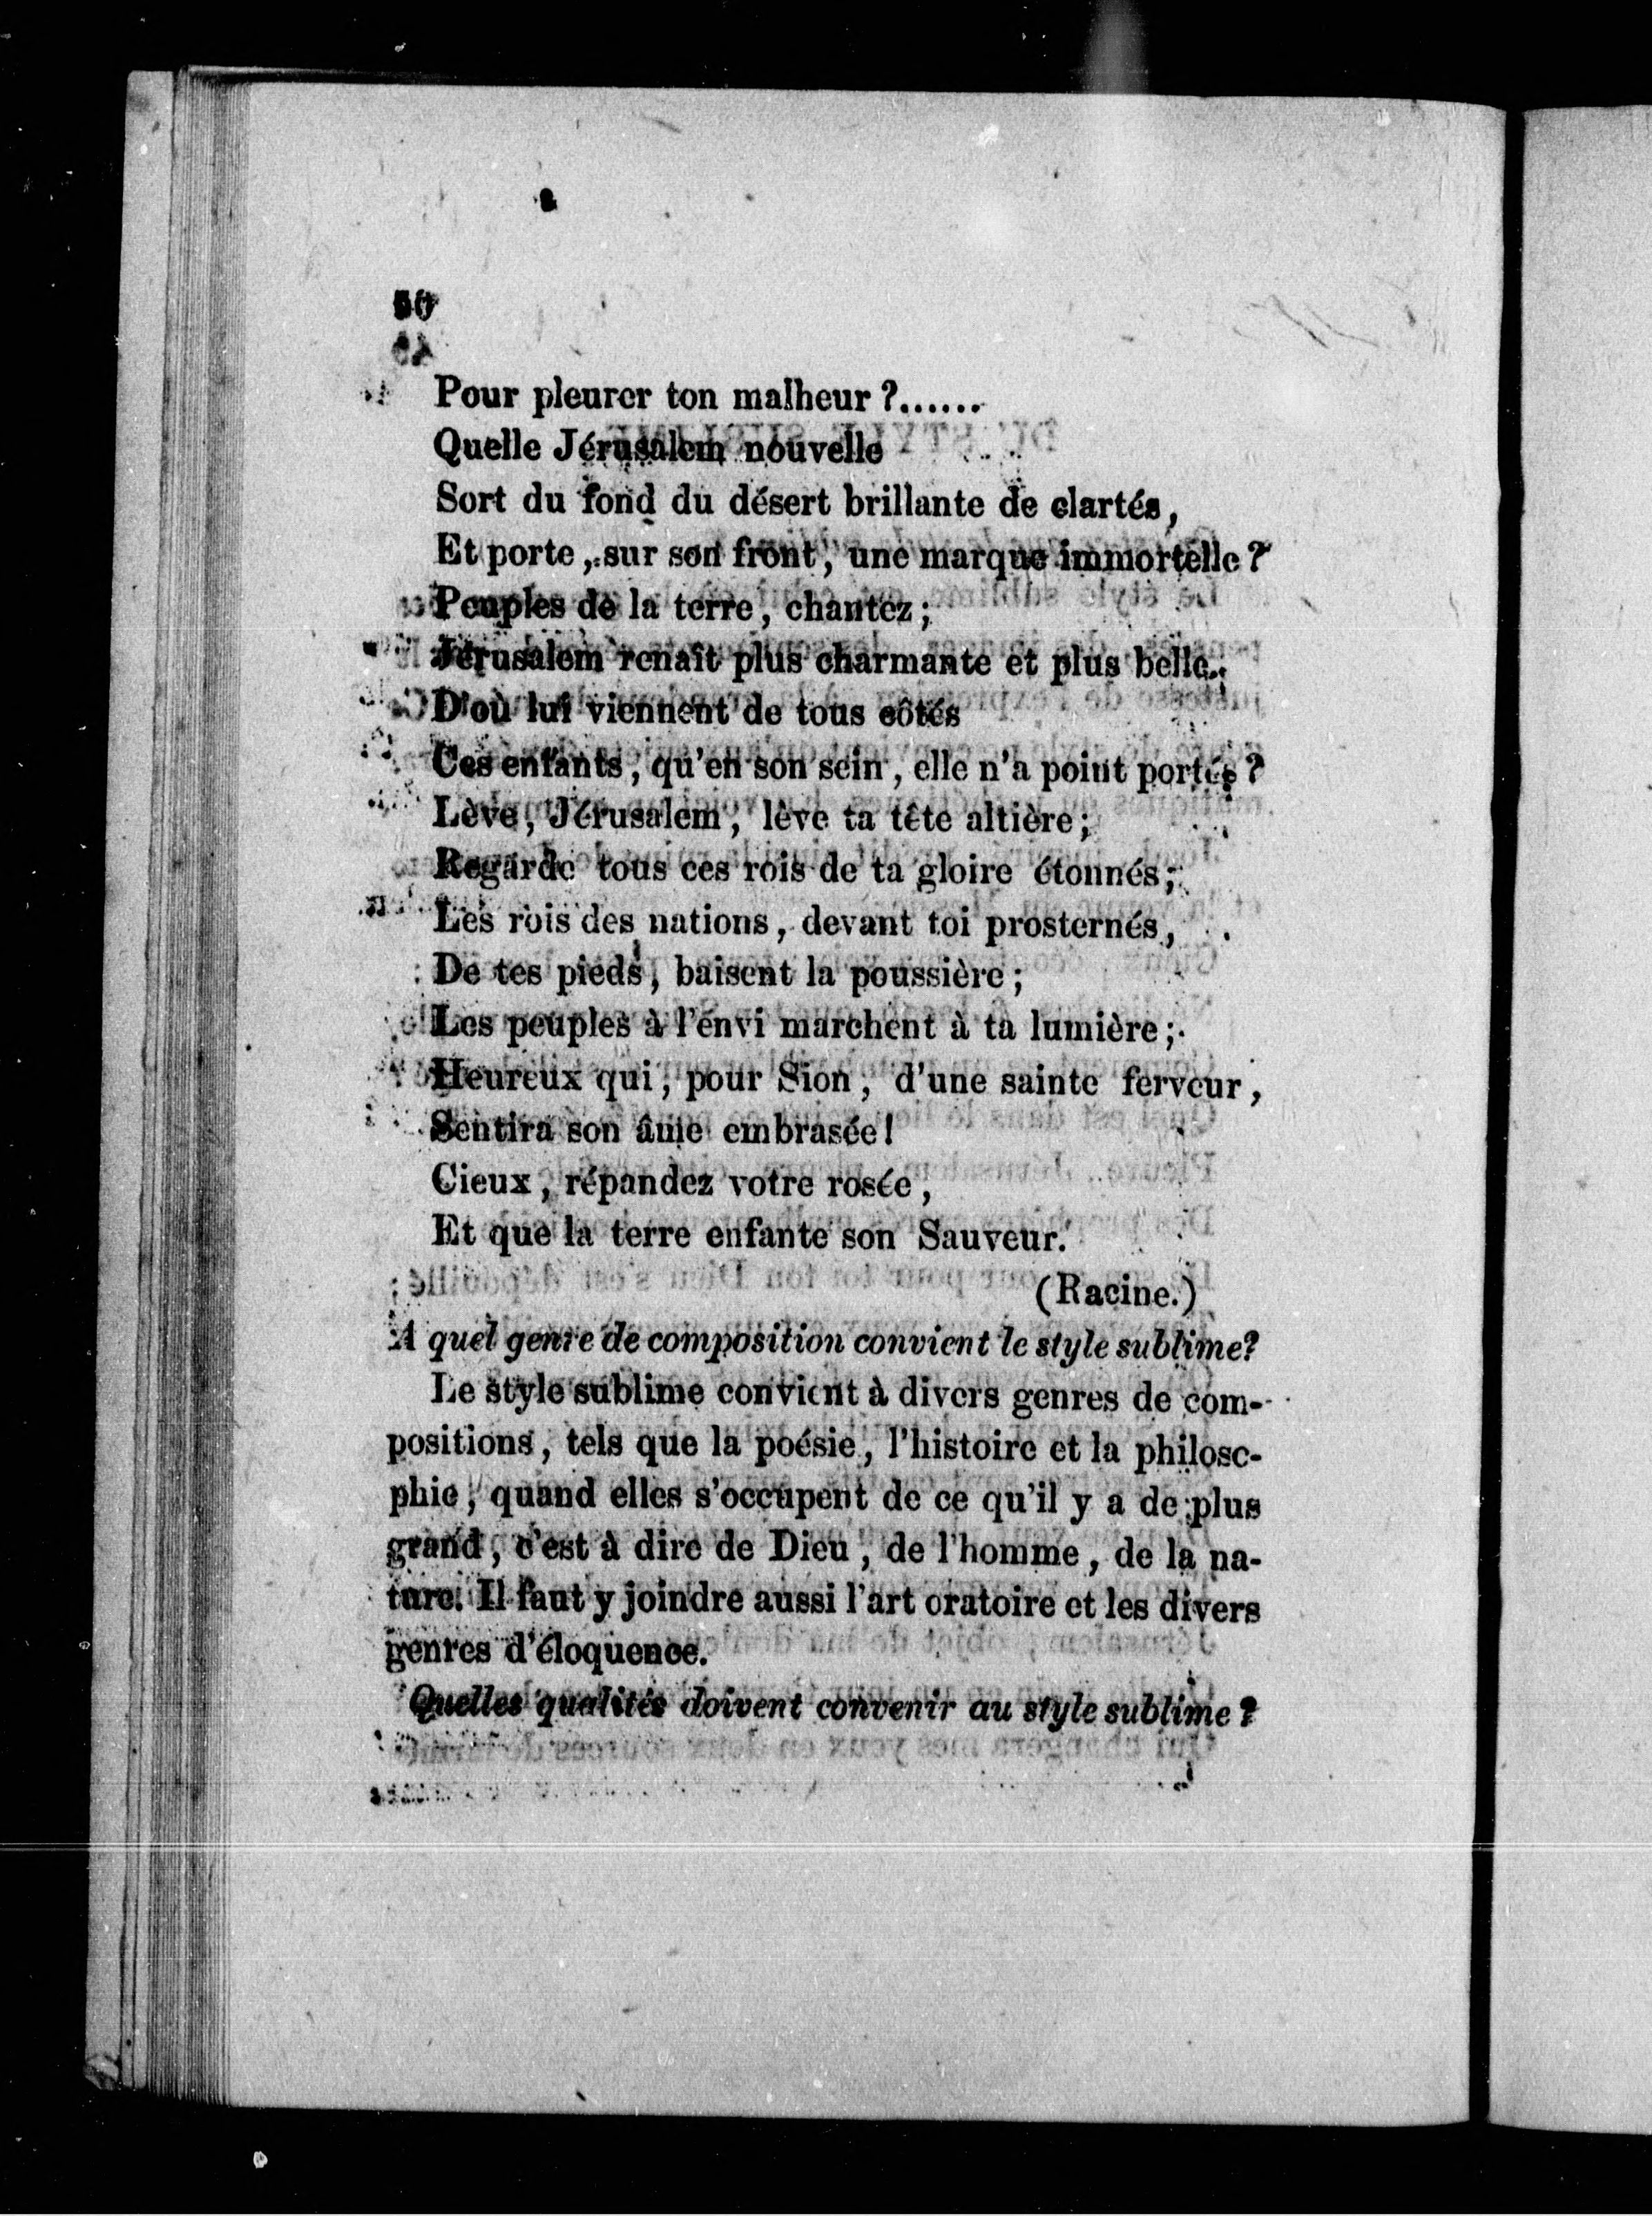 50
Pour pleurer ton malheur ?......
Quelle Jérusalem nouvelle
Sort du fond du désert brillante de clartés,
Et porte, sur son front, une marque immortelle ?
Peuples de la terre, chantez ;
Jérusalem renaît plus charmante et plus belle.
D'où lui viennent de tous côtés
Ces enfants, qu'en son sein, elle n'a point portés ?
Lève, Jérusalem, lève ta tête altière ;
Regarde tous ces rois de ta gloire étonnés ;
Les rois des nations, devant toi prosternés,
De tes pieds, baisent la poussière ;
Les peuples à l'envi marchent à ta lumière ;
Heureux qui, pour Sion, d'une sainte ferveur,
Sentira son âme embrasée !
Cieux, répandez votre rosée,
Et que la terre enfante son Sauveur.
(Racine.)
A quel genre de composition convient le style sublime?
Le style sublime convient à divers genres de com-
positions, tels que la poésie, l'histoire et la philoso-
phie, quand elles s'occupent de ce qu'il y a de plus
grand, c'est à dire de Dieu, de l'homme, de la na-
ture. Il faut y joindre aussi l'art oratoire et les divers
genres d'éloquence.
Quelles qualités doivent convenir au style sublime ?